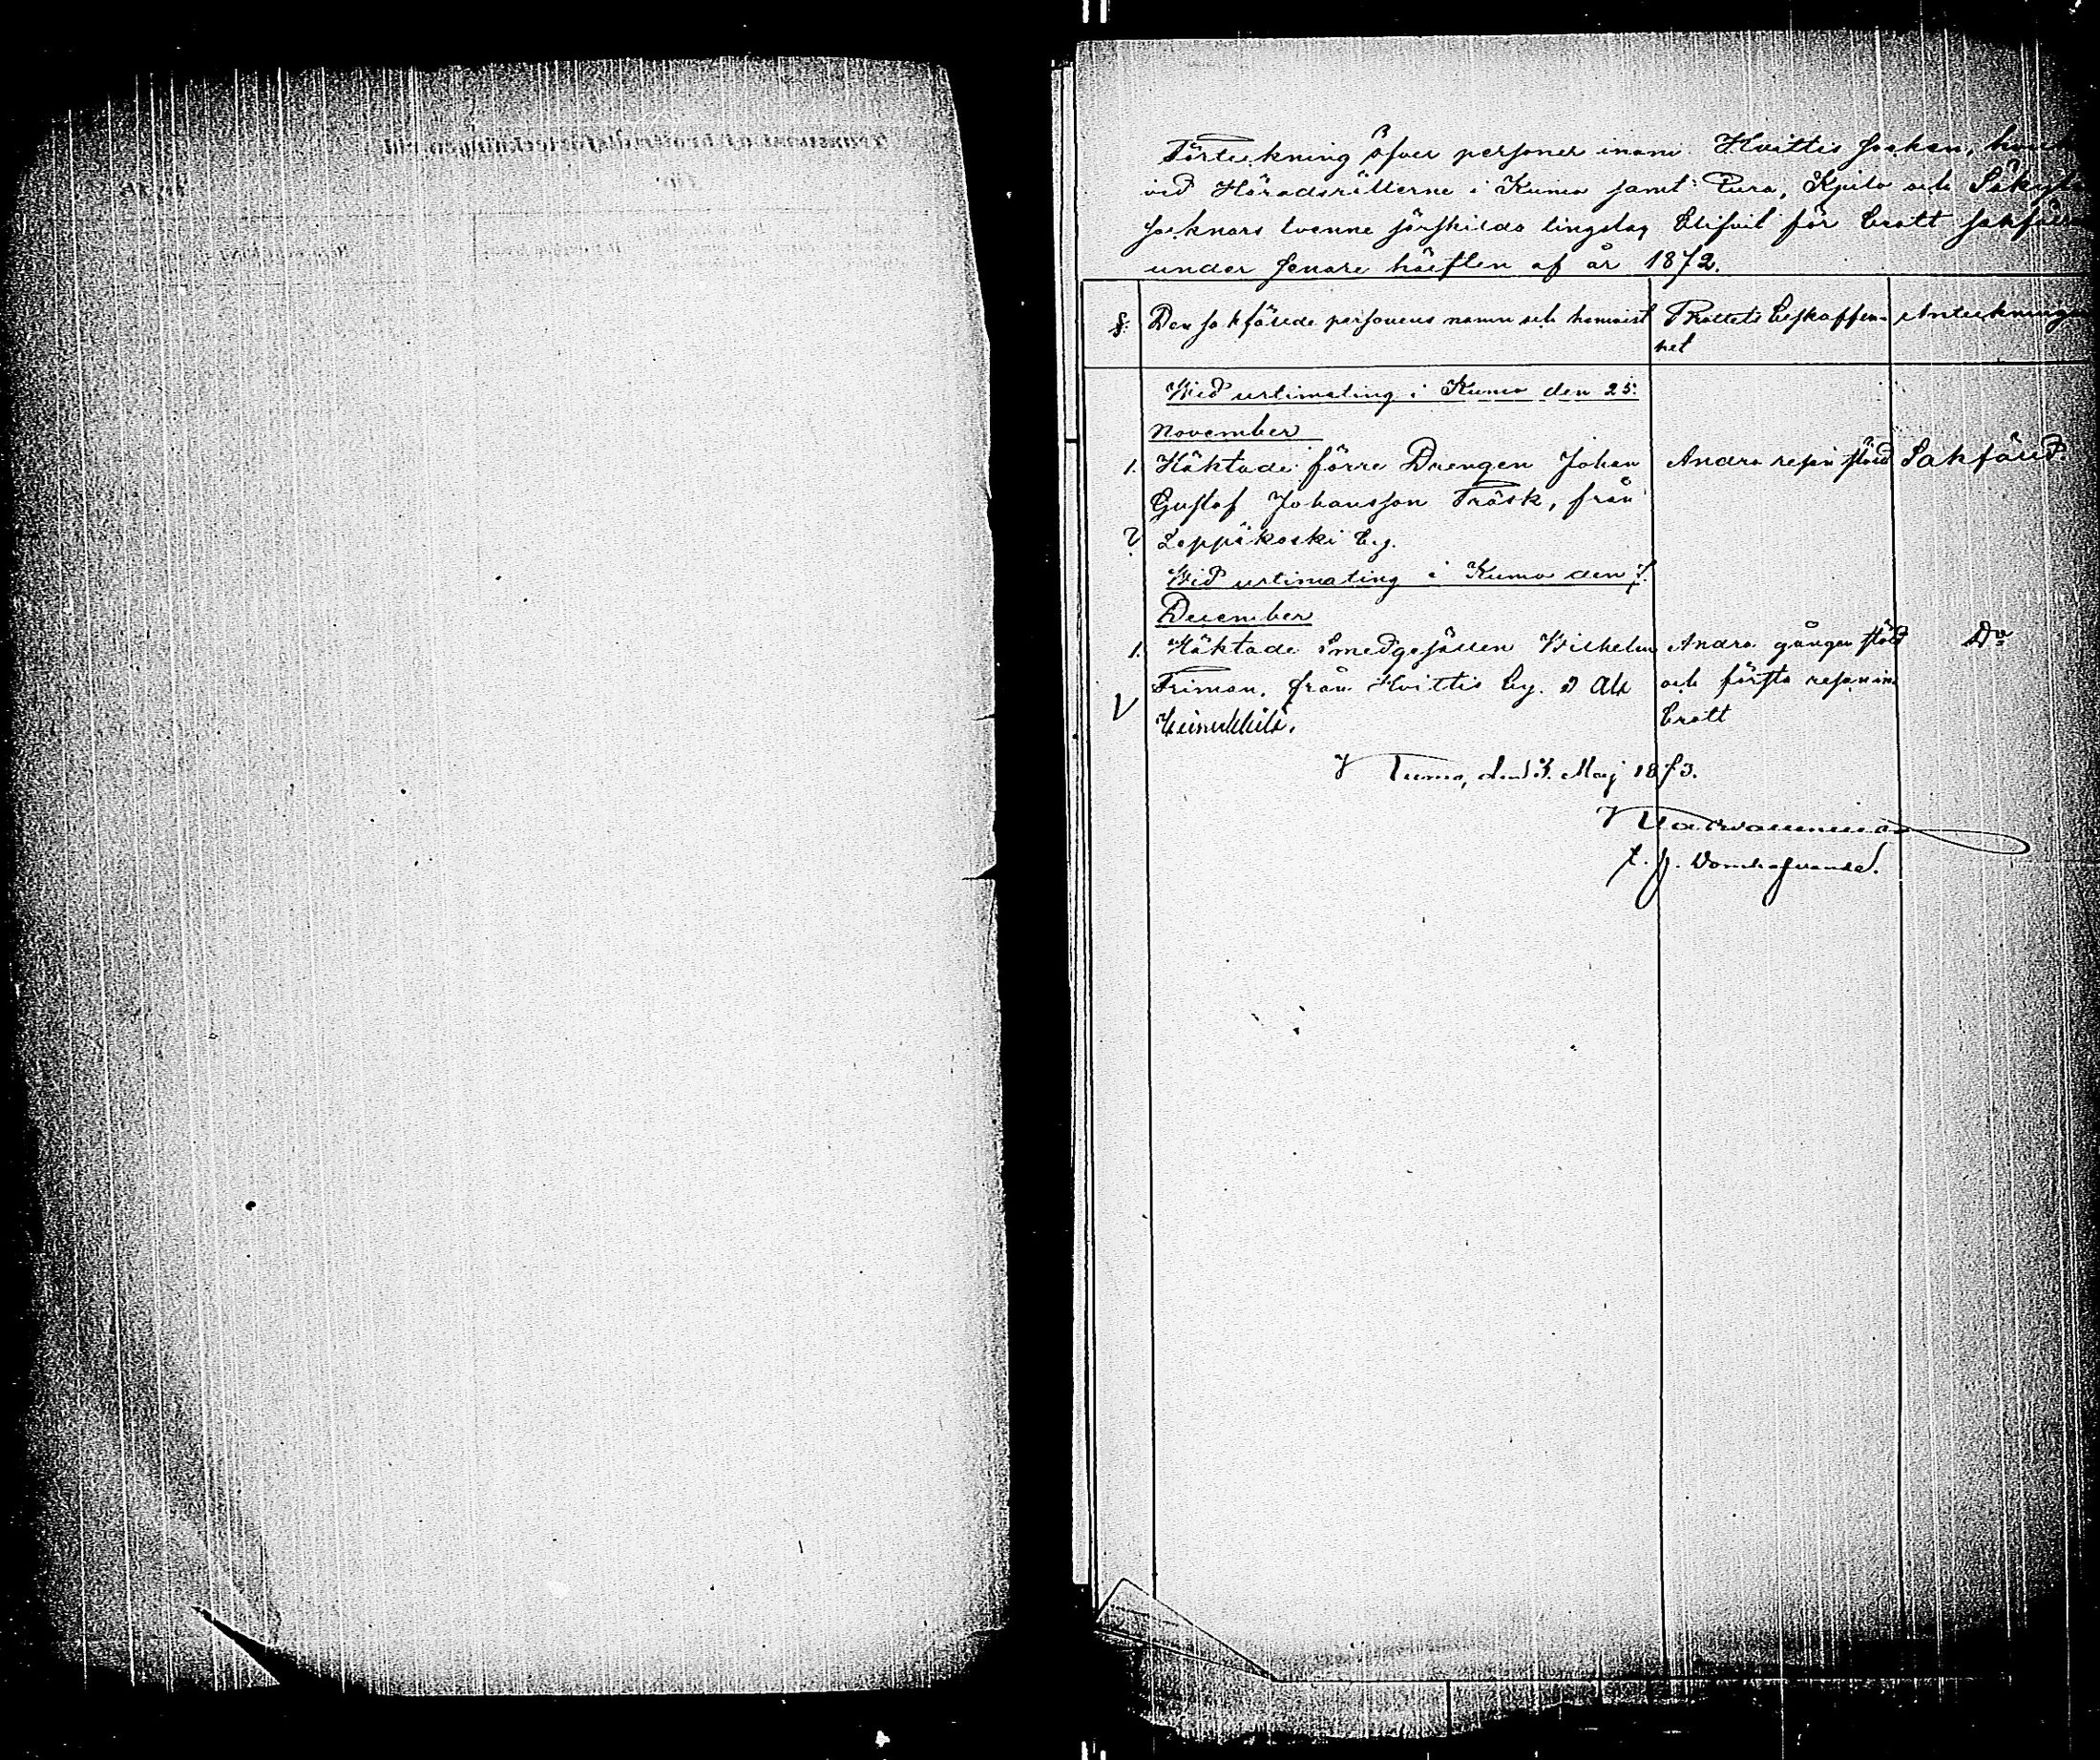 Förteckning öfver personer inom Hvittis socken,
vid Häradsrätterne i Kumo samt Eura, Kjulo och Säkylä
socknars tvenne särskilda tingslag blifvit för brott sakfälde
under senare hälften af år 1872.
§. Den sakfälde personens namn och hemvist Brottets beskaffen- Anteckningar
het
Wid urtimating i Kumo den 25.
November
1. Häktade förre Drengen Johan Andra resan stöld Sakfäld
Gustaf Johansson Träsk, från
? Loppikoski by.
Wid urtimating i Kumo den 7.
December
1. Häktade Smedgesällen Wilhelm Andra gången stöld Do
Friman, från Hvittis by. och första resan in-
V brott
Kumo, den 3. Maj 1873.
t. f. Domhafvande.